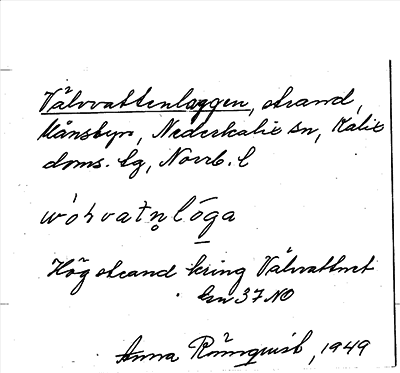 Vålvvattenlaggen, strand,
Månsbyn, Nederkalix sn, Kalix
doms. lg, Norrb. l
Hög strand kring Vålvattnet
37 NO
Anna Rönnquist, 1949